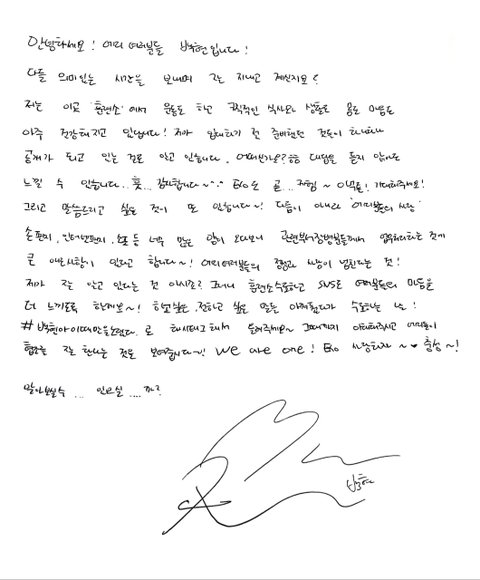 안녕하세요! 에리 여러분들 백현입니다!
다들 의미있는 시간을 보내며 잘 지내고 계신지요?
저는 이곳 '훈련소'에서 운동도 하고 규칙적인 식사와 생활로 몸도 마음도
아주 건강해지고 있답니다! 제가 입대하기 전 준비했던 것들이 하나하나
공개가 되고 있는 걸로 알고 있습니다. 어떠신가요? 대답은 듣지 않아도
느낄 수 있습니다... 훗... 감사합니다~ Exo도 곧... 기대해주세요!
그리고 말씀드리고 싶은 것이 또 있습니다~! 다름이 아니라 '여러분들의 사랑'
손편지, 인터넷편지, 소포 등 너무 많은 양이 오다보니 관련부서장병분들께서 업무처리하는 것에
큰 애로사항이 있다고 합니다~! 에리여러분들의 정성과 사랑이 넘친다는 것!
제가 잘 알고 있다는 것 아시죠? 그러니 훈련소수료하고 SNS로 여러분들의 마음을
더 느끼도록 하겠어요~! 하고싶은, 전하고 싶은 말은 아껴뒀다가 수료하는 날!
#백현아이때만을노렸다. 로 해시태그해서 들려주세요~ 그때까지 아껴주시고 여러분이
협조를 잘 한다는 것을 보여줍시다~! We are one! Exo 사랑하자~ ♥ 충성~!
알아보실수... 있으실.... 까?
백현